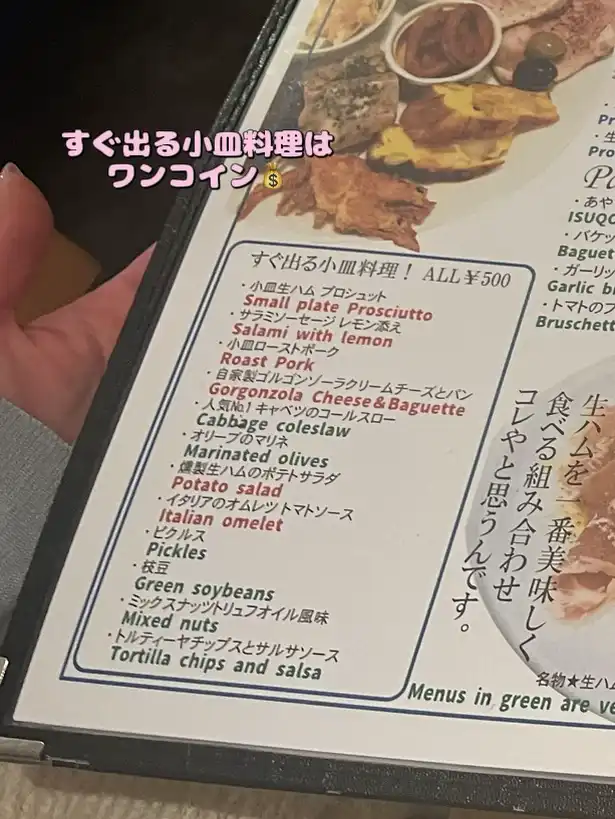 すぐ出る小皿料理は
ワンコイン💰
すぐ出る小皿料理！ ALL￥500
・小皿生ハム プロシュット
Small plate Prosciutto
・サラミソーセージ レモン添え
Salami with lemon
・小皿ローストポーク
Roast Pork
・自家製ゴルゴンゾーラクリームチーズとパン
Gorgonzola Cheese＆Baguette
・人気№1 キャベツのコールスロー
Cabbage coleslaw
・オリーブのマリネ
Marinated olives
・燻製生ハムのポテトサラダ
Potato salad
・イタリアのオムレツ トマトソース
Italian omelet
・ピクルス
Pickles
・枝豆
Green soybeans
・ミックスナッツトリュフオイル風味
Mixed nuts
・トルティーヤチップスとサルサソース
Tortilla chips and salsa
Menus in green are ve
生ハムを一番美味しく
食べる組み合わせ
コレやと思うんです。
名物★生ハム
Pr
・生
Pro
・あや
ISUQ
・バケッ
Baguet
・ガーリッ
Garlic b
・トマトのブ
Bruschett